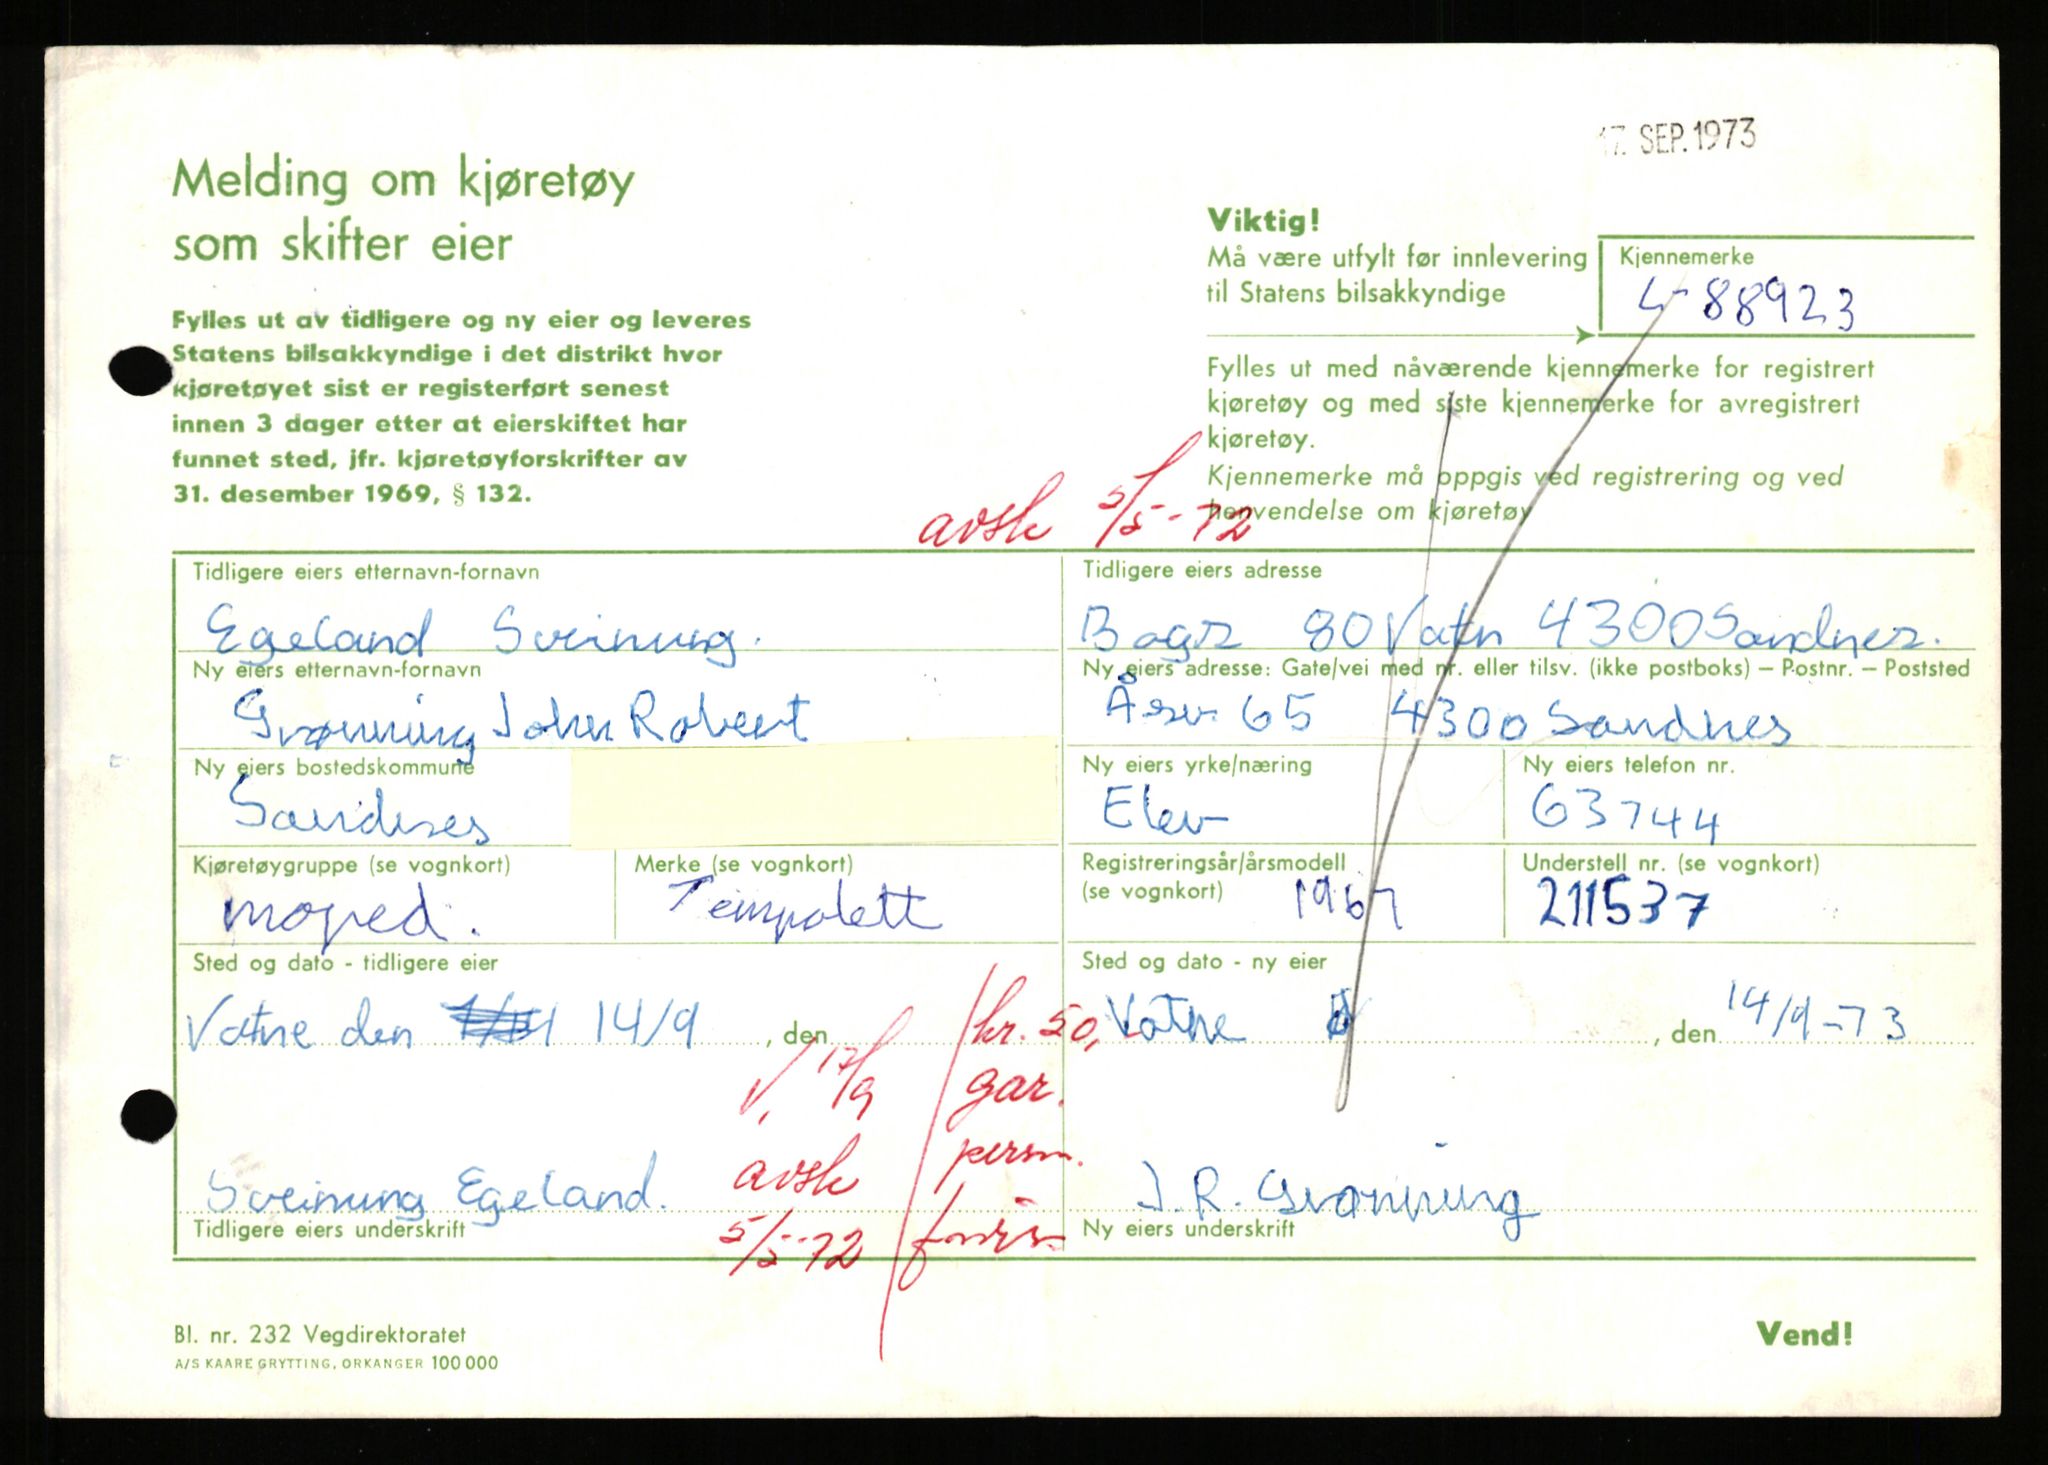 17. SEP. 1973
Melding om kjøretøy
som skifter eier
Fylles ut av tidligere og ny eier og leveres
Statens bilsakkyndige i det distrikt hvor
kjøretøyet sist er registerført senest
innen 3 dager etter at eierskiftet har
funnet sted, jfr. kjøretøyforskrifter av
31. desember 1969, § 132.
Viktig!
Må være utfylt før innlevering
til Statens bilsakkyndige
Kjennemerke
L-88923
Fylles ut med nåværende kjennemerke for registrert
kjøretøy og med siste kjennemerke for avregistrert
kjøretøy.
Kjennemerke må oppgis ved registrering og ved
henvendelse om kjøretøy
avsk 5/5-72
Tidligere eiers etternavn-fornavn
Egeland Sveinung.
Tidligere eiers adresse
80 Vatn 4300 Sandnes.
Ny eiers etternavn-fornavn
Grønning John Robert
Ny eiers adresse: Gate/vei med nr. eller tilsv. (ikke postboks) — Postnr. — Poststed
Åsv. 65 4300 Sandnes
Ny eiers bostedskommune
Sandnes
Ny eiers yrke/næring
Elev
Ny eiers telefon nr.
63744
Kjøretøygruppe (se vognkort)
moped.
Merke (se vognkort)
Tempolett
Registreringsår/årsmodell
(se vognkort)
1967
Understell nr. (se vognkort)
211537
Sted og dato - tidligere eier
Vatne den 14/9 , den
Sted og dato - ny eier
Vatne , den 14/9-73
V. 17/9
avsk
5/5-72
kr. 50,
gar.
persn.
Sveinung Egeland.
Tidligere eiers underskrift
J. R. Grønning
Ny eiers underskrift
Bl. nr. 232 Vegdirektoratet
A/S KAARE GRYTTING, ORKANGER 100 000
Vend!